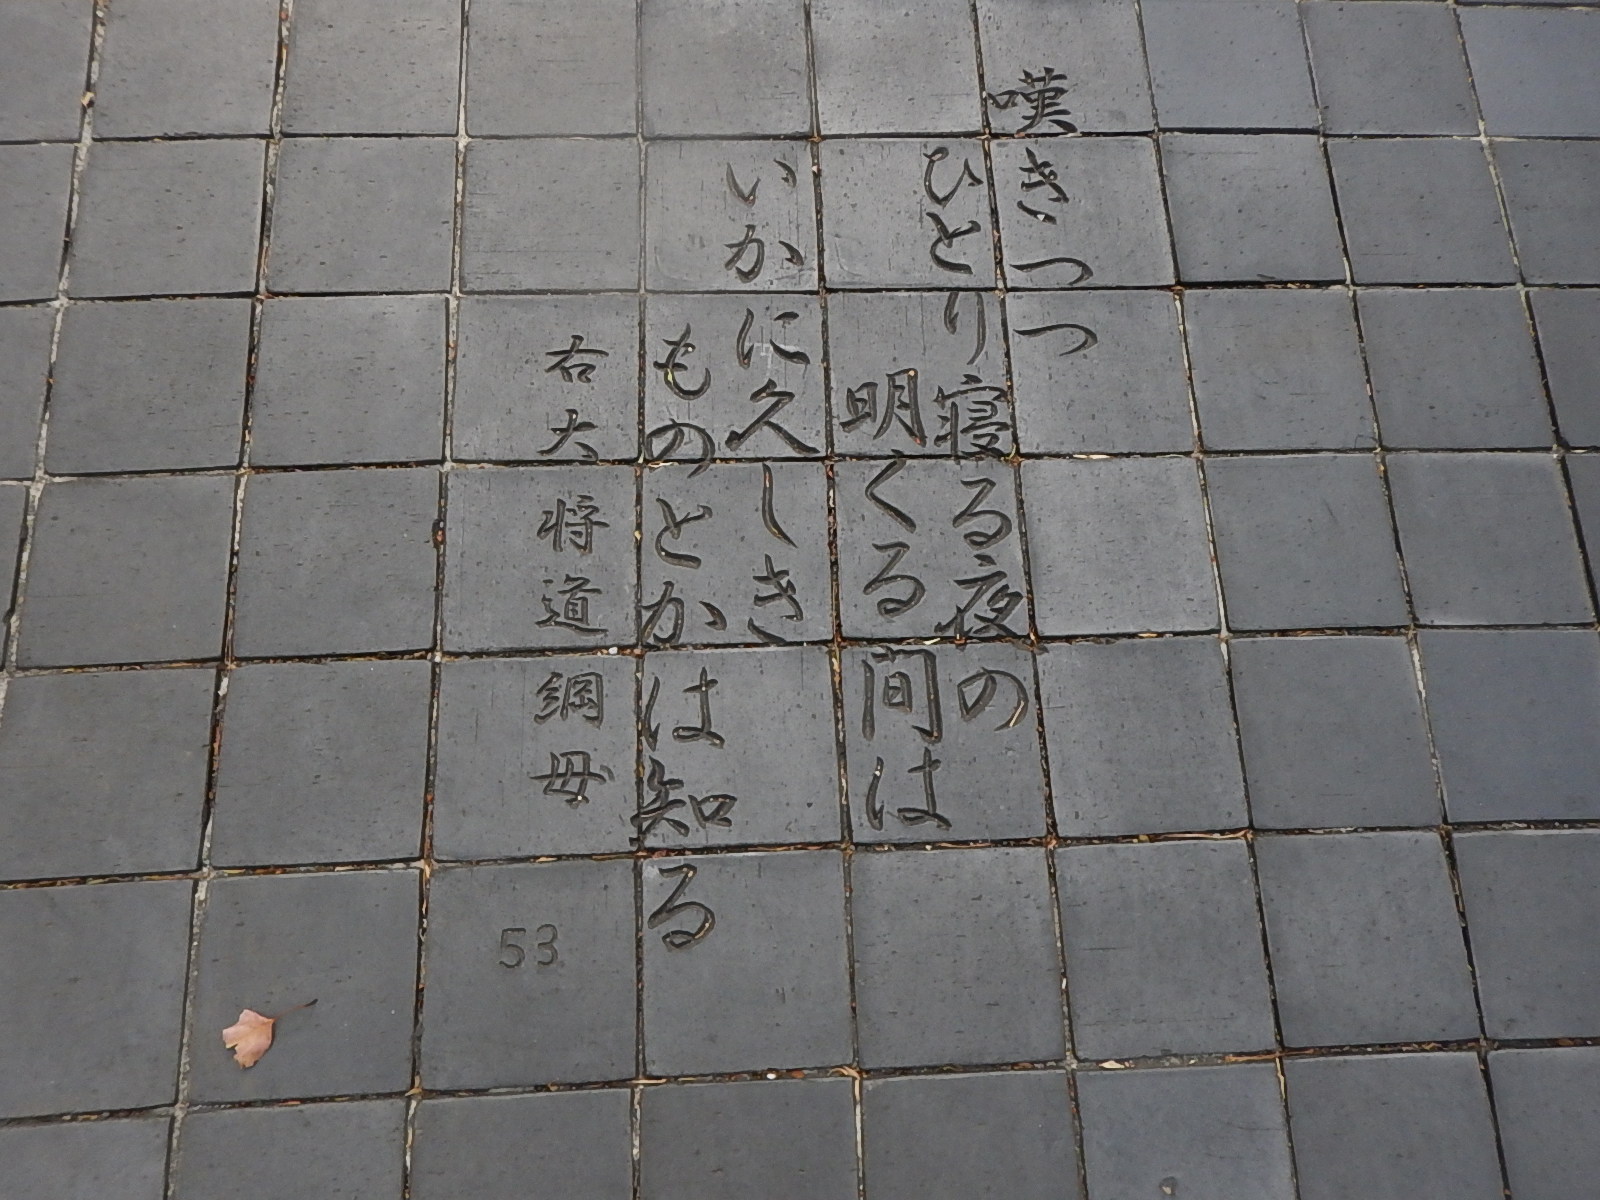 嘆きつつ
ひとり寝る夜の
明くる間は
いかに久しき
ものとかは知る
右大将道綱母
53